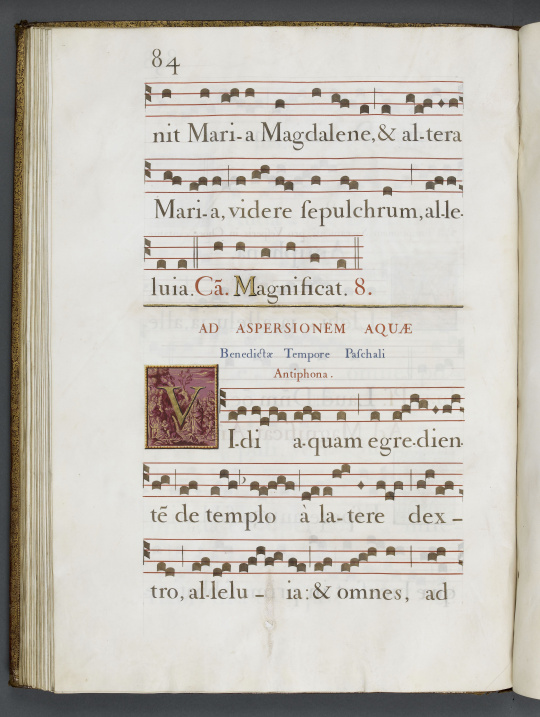 84
nit Mari-a Magdalene, & al-tera
Mari-a, videre ſepulchrum, al-le-
luia. Cã. Magnificat. 8.
AD ASPERSIONEM AQUÆ
Benedictæ Tempore Paſchali
Antiphona.
VI.di a.quam egre-dien-
tẽ de templo à la-tere dex-
tro, al-lelu - ia: & omnes, ad